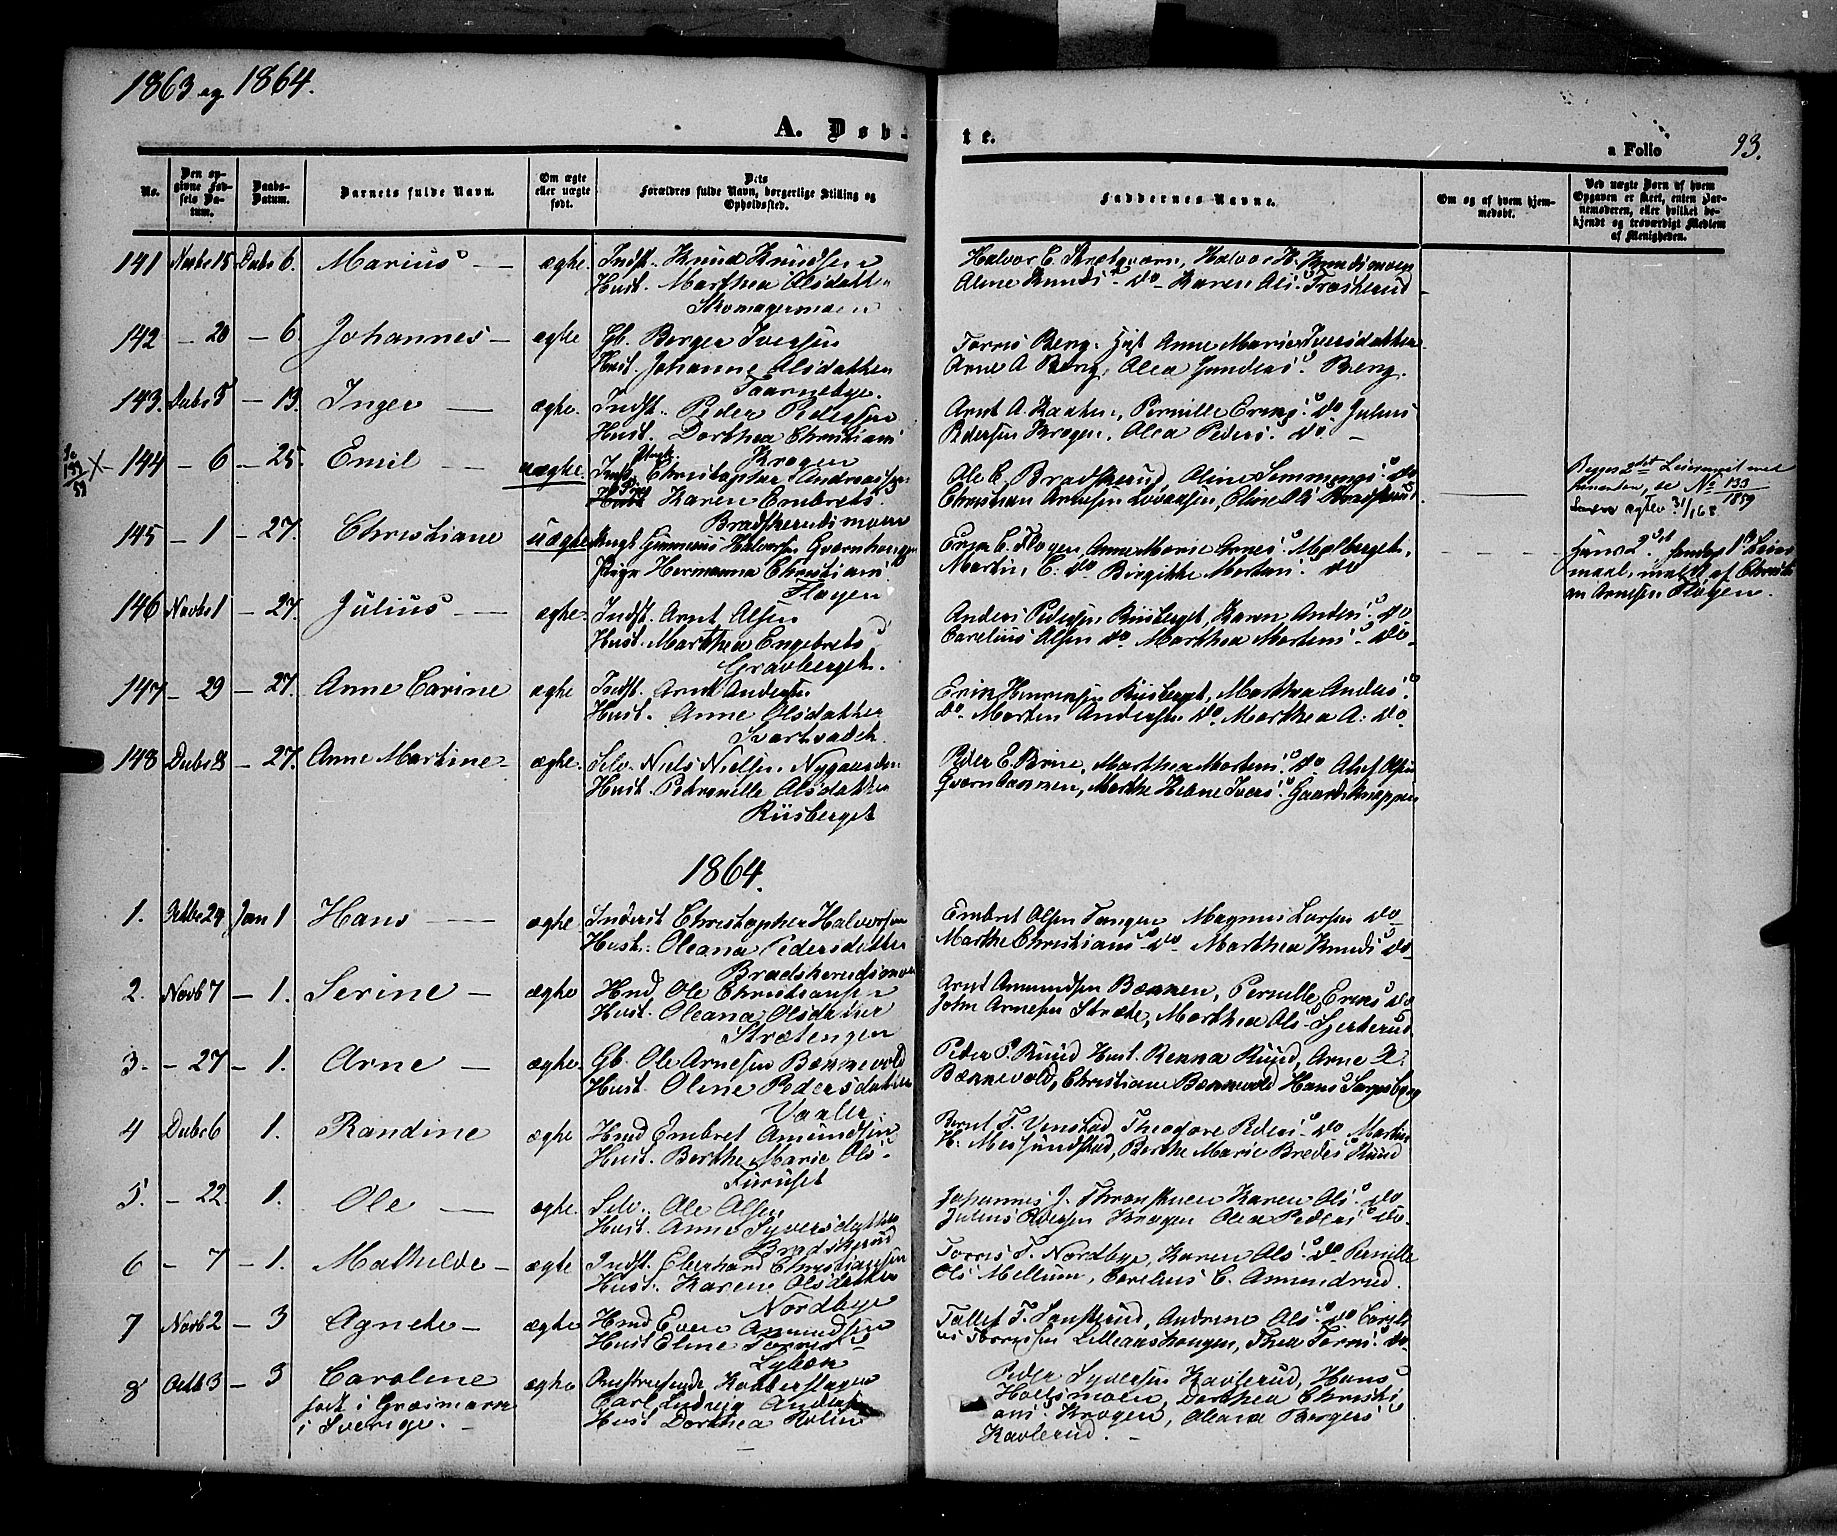 1863 og 1864.
A. Døb-
te.
a Folio
93.
No.
Den op-
givne Fød-
sels Da-
tum.
Daabs-
Datum.
Barnets fulde Navn.
Om ægte
eller uægte
født.
Dets
Forældres fulde Navn, borgerlige Stilling og
Opholdssted.
Faddernes Navne.
Om og af hvem hjem-
medøbt.
Ved uægte Børn af hvem
Opgaven er skeet, enten Bar-
nemoderen, eller hvilket be-
kjendt og troværdigt Medlem
af Menigheden.
141 Novbr 15 Decbr 6. Marius — ægte Indst. Knud Knudsen
Hust. Marthea Olsdatter
Skomagermoen
Halvor E. Strætqværn, Halvor K. Knudsmoen
Aline Knuds. do Karen Ols. Traskerud
142 — 20 — 6. Johannes — ægte Gb. Berger Iversen
Hust. Johanne Olsdatter
Taarnebye.
Torris Berg. Hust Anne Marie Iversdatter
Arne A Berg, Olea Gunders. Berg.
143. Decbr 5 — 13. Inger — ægte. Indst. Peder Pedersen
Hust. Dorthea Christians
Krogen
Arnt A. Kaaten, Pernille Erics. do Julius
Pedersen Krogen, Olea Peders. do. —
144 — 6 — 25. Emil — uægte. Christopher Andreassen
Pige Karen Embrets
Bradskerudsmoen
Ole E. Bradskerud, Oline Simmens. do
Christian Arnesen
Begges 2det Leiermaal med
hinanden, se No 133/1859
145 — 1 — 27. Christiane uægte Ungk. Gunnerius Halvorsen Qværnhaugen
Pige Hermanna Christians.
Flagen
Martin E. do Birgitte Mortens. do
Hans 2det hendes 1ste Leier-
maal, meldt af Christi
an Arnesen Flagen.
146 Novbr 1 — 27. Julius — ægte. Indst. Arnt Olsen
Hust. Marthea Engebrets
Gravberget.
Anders Pedersen Riisberget, Karen Anders. do.
Carelius Olsen do. Marthea Mortens. do.
147 — 29 — 27. Anne Carine ægte Indst. Arnt Andersen
Hust. Anne Olsdatter
Svartvadet.
Eric Henriksen Riisberget, Marthea Anders.
do. Morten Andersen do. Marthea A. do.
148 Decbr 8 — 27. Anne Martine — ægte. Selv. Niels Nielsen Nygaarden
Hust. Petronelle Olsdatter
Riisberget
Peder E. Brue, Marthea Mortens. do Oluf Olsen
Marthe Helene Ivers. Gaardsknappen
1864.
1. Octbr 29 Jan 1 Hans — ægte Inderst Christopher Halvorsen
Hust. Oleana Pedersdatter
Bradskerudsmoen
Embret Olsen Tangen Magnus Larsen do
Marthe Christians. do Marthea Knuds do
2. Novb 7 — 1. Serine — ægte Hmd Ole Christiansen
Hust. Oleana Olsdatter
Strætengen
Arnt Amundsen Bænnen, Pernille Erics. do
John Arnesen Stræte, Marthea Ols. Gjerterud
3. — 27 — 1. Arne — ægte. Gb. Ole Arnesen Bænnevold
Hust. Oline Pedersdatter
Vaaler
Peder P. Ruud Hust. Renna Ruud, Arne A.
Bænnevold, Christiane Bænnevold Hans Sorgsberg
4 Decbr 6 1. Randine ægte Hmd Embret Amundsen
Hust. Berthe Marie Ols.
Furuset
Bernt T. Venstad Theodore Peders. do Martin
H. Medsundstad, Berthe Marie Bredes. Ruud
5. — 22. 1. Ole — ægte. Selv. Ole Olsen
Hust. Anne Syversdatter
Bradskerud
Johannes J. Karen Ols. do
Julius Pedersen Krogen Olea Peders. do.
6 — 7 — 1. Mathilde — ægte Indst. Eberhard Christiansen
Hust. Karen Olsdatter
Nordbye
Torris T. Nordbye, Karen Ols. do Pernille
Ols Mellum, Carelius C. Amundrud.
7 Novb 2 — 3 Agnete — ægte Hmd Even Amundsen
Hust Eline Torris
Lybæn
Tollef T. Sonskerud, Andrine Ols. do Careli-
us Torrissen Lilleaashaugen, Thea Torris. do
8 Octb 3 — 3 Caroline
født i Græsmark
i Sverige. —
ægte Omstreifende
Carl Ludvig Andersen
Hust Dorthea
Peder Syversen Kavlerud, Hans
Dorthea Christi
ans. Krogen, Oleane Bergers.
Kavlerud. —